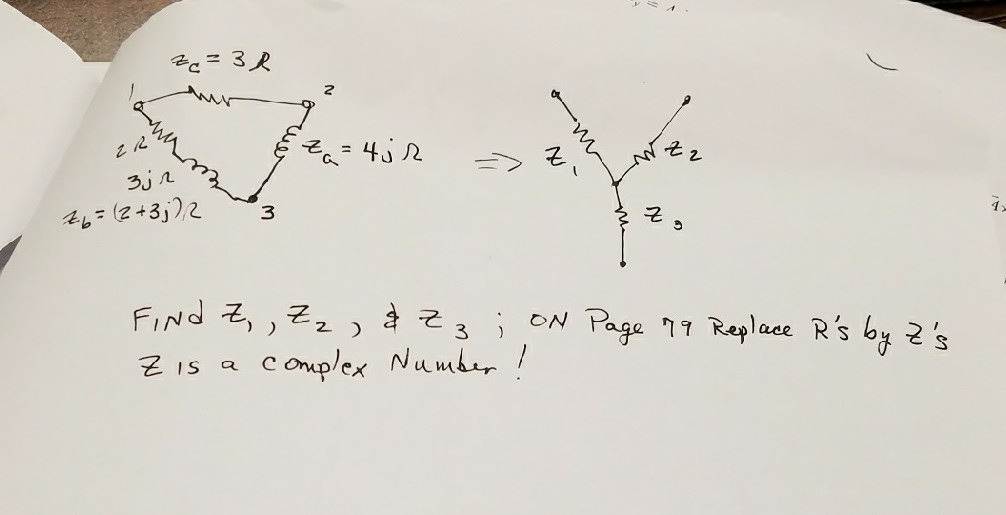 Zc = 3 Ω
1
2
2 Ω
3j Ω
Zb = (2+3j) Ω
Za = 4j Ω
3
⇒
Z1
Z2
Z3
FINd Z1, Z2, & Z3 ; ON Page 79 Replace R's by Z's
Z IS a Complex Number !